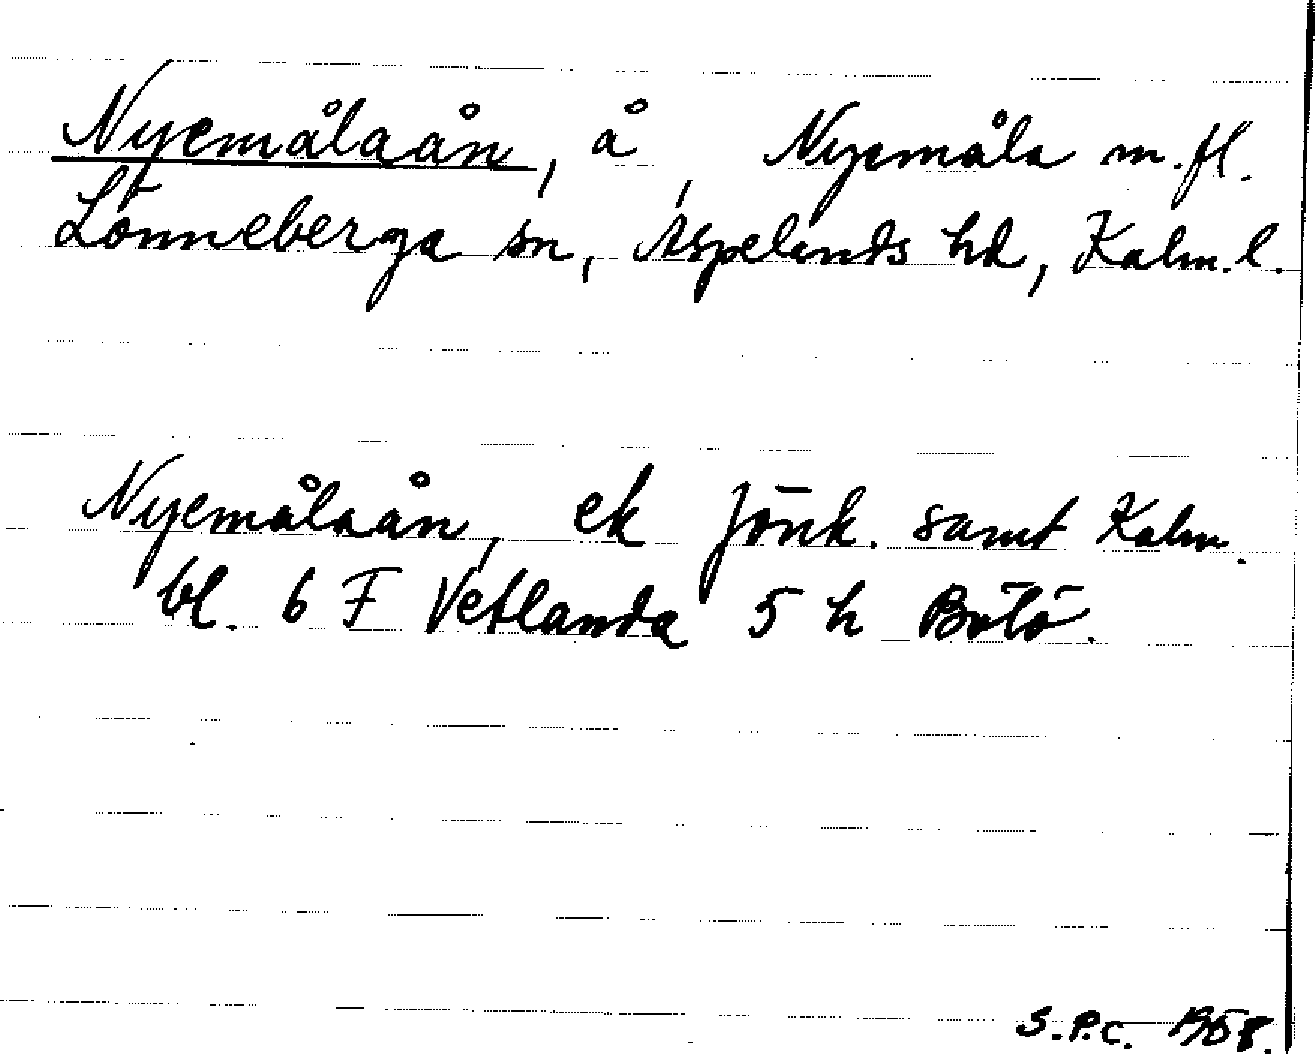 Nyemålaån, å, Nyemåla m.fl.
Lönneberga sn, Aspelands hd, Kalm.l.
Nyemålaån, ek Jönk. samt Kalm.
bl. 6 F Vetlanda 5 h Bötö.
S.P.C.